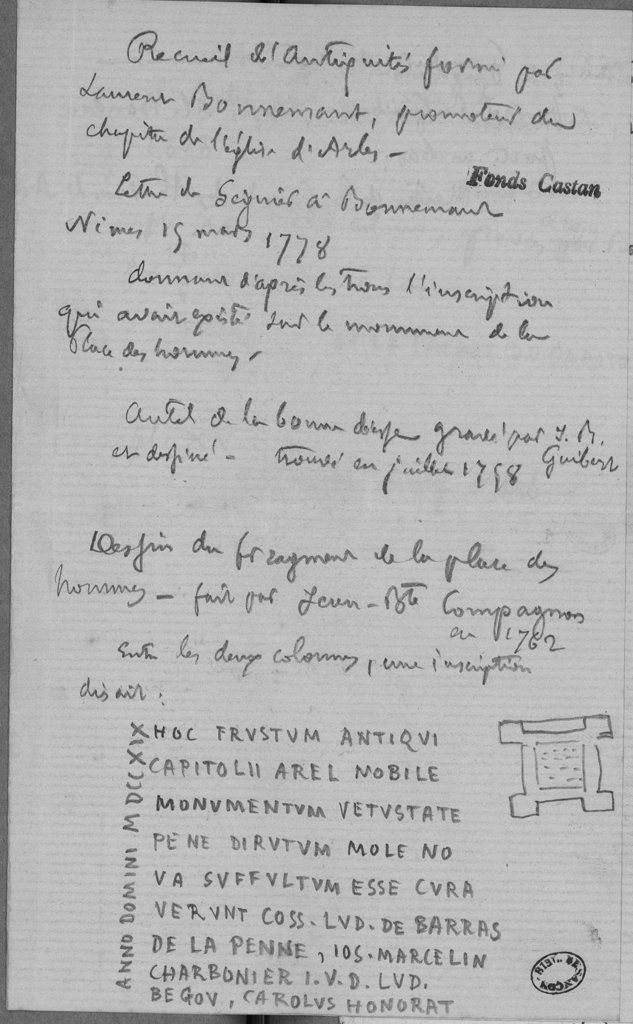 Recueil d'Antiquités formé par
Laurent Bonnemant, promoteur du
chapitre de l'église d'Arles —
Fonds Castan
Lettre de Séguier à Bonnemant
Nimes 15 mars 1778
donnant d'après les trous l'inscription
qui avait existé sur le monument de la
Place des hommes —
Autel de la bonne déesse gravé par J. B.
et dessiné — trouvé en juillet 1758 Guibert
Dessin du fragment de la place des
hommes — fait par Jean-Bte Compagnon
en 1762
Entre les deux colonnes, une inscription
disait :
HOC FRVSTVM ANTIQVI
CAPITOLII AREL NOBILE
MONVMENTVM VETVSTATE
PENE DIRVTVM MOLE NO
VA SVFFVLTVM ESSE CVRA
VERVNT COSS. LVD. DE BARRAS
DE LA PENNE, IOS. MARCELIN
CHARBONIER I.V.D. LVD.
BEGOV, CAROLVS HONORAT
ANNO DOMINI M DCCXIX